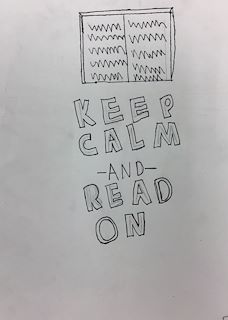 KEEP
CALM
-AND-
READ
ON